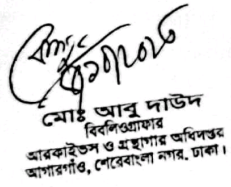 মোঃ আবু দাউদ
বিবলিওগ্রাফার
আরকাইভস ও গ্রন্থাগার অধিদপ্তর
আগারগাঁও, শেরেবাংলা নগর, ঢাকা।